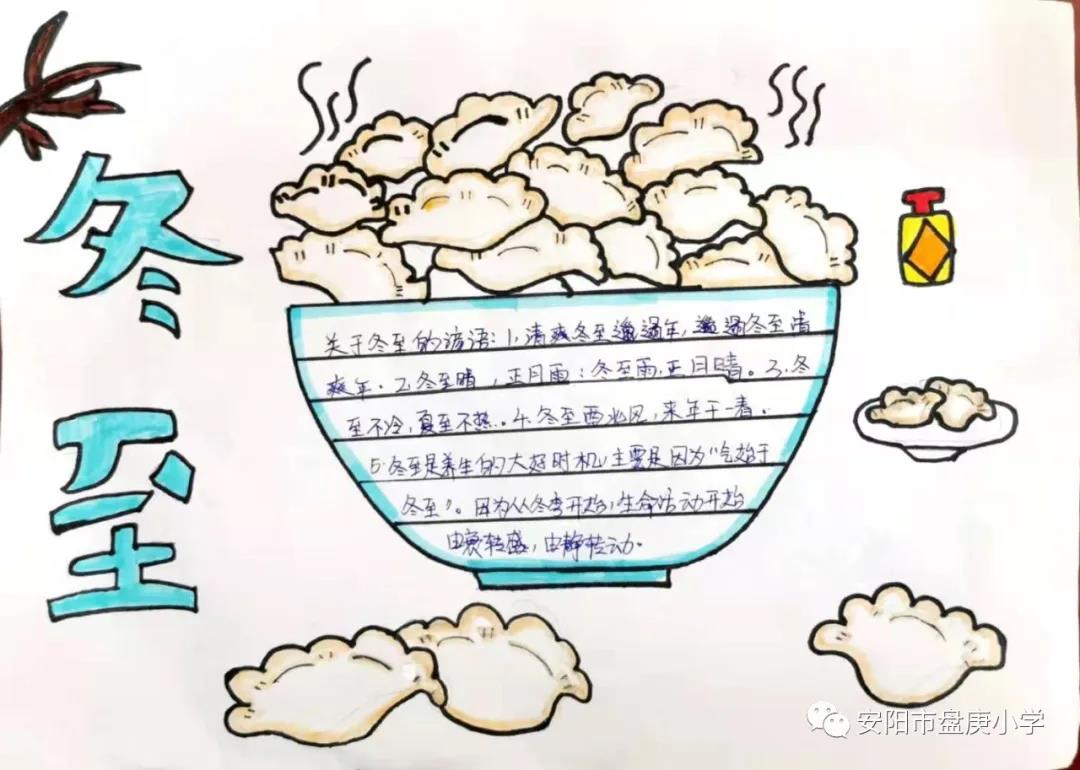 冬至
关于冬至的谚语：1、清爽冬至邋遢年，邋遢冬至清
爽年。2、冬至晴，正月雨；冬至雨，正月晴。3、冬
至不冷，夏至不热。4、冬至西北风，来年干一春。
5、冬至是养生的大好时机，主要是因为“气始于
冬至”。因为从冬季开始，生命活动开始
由衰转盛，由静转动。
安阳市盘庚小学